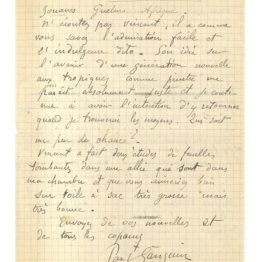 N'écoutez pas Vincent, il a comme
vous savez l'admiration facile et
l'indulgence dito. Son idée sur
l'avenir d'une génération nouvelle
aux tropiques comme peintre me
paraît absolument juste et je continue
à avoir l'intention d'y retourner
quand je trouverai les moyens. Qui sait
un peu de chance?
Vincent a fait deux études de feuilles
tombantes dans une allée qui sont dans
ma chambre et que vous aimeriez bien.
Sur toile à sac très grosse mais
très bonne.
Envoyez de vos nouvelles et
de tous les copains
Paul Gauguin